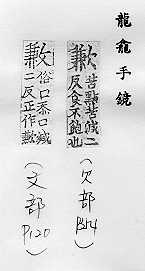 龍龕手鏡
歉苦點苦減二
反食不飽也
(欠部
P.354)
歉俗口忝口減
二反正作歉
(文部
P.120)